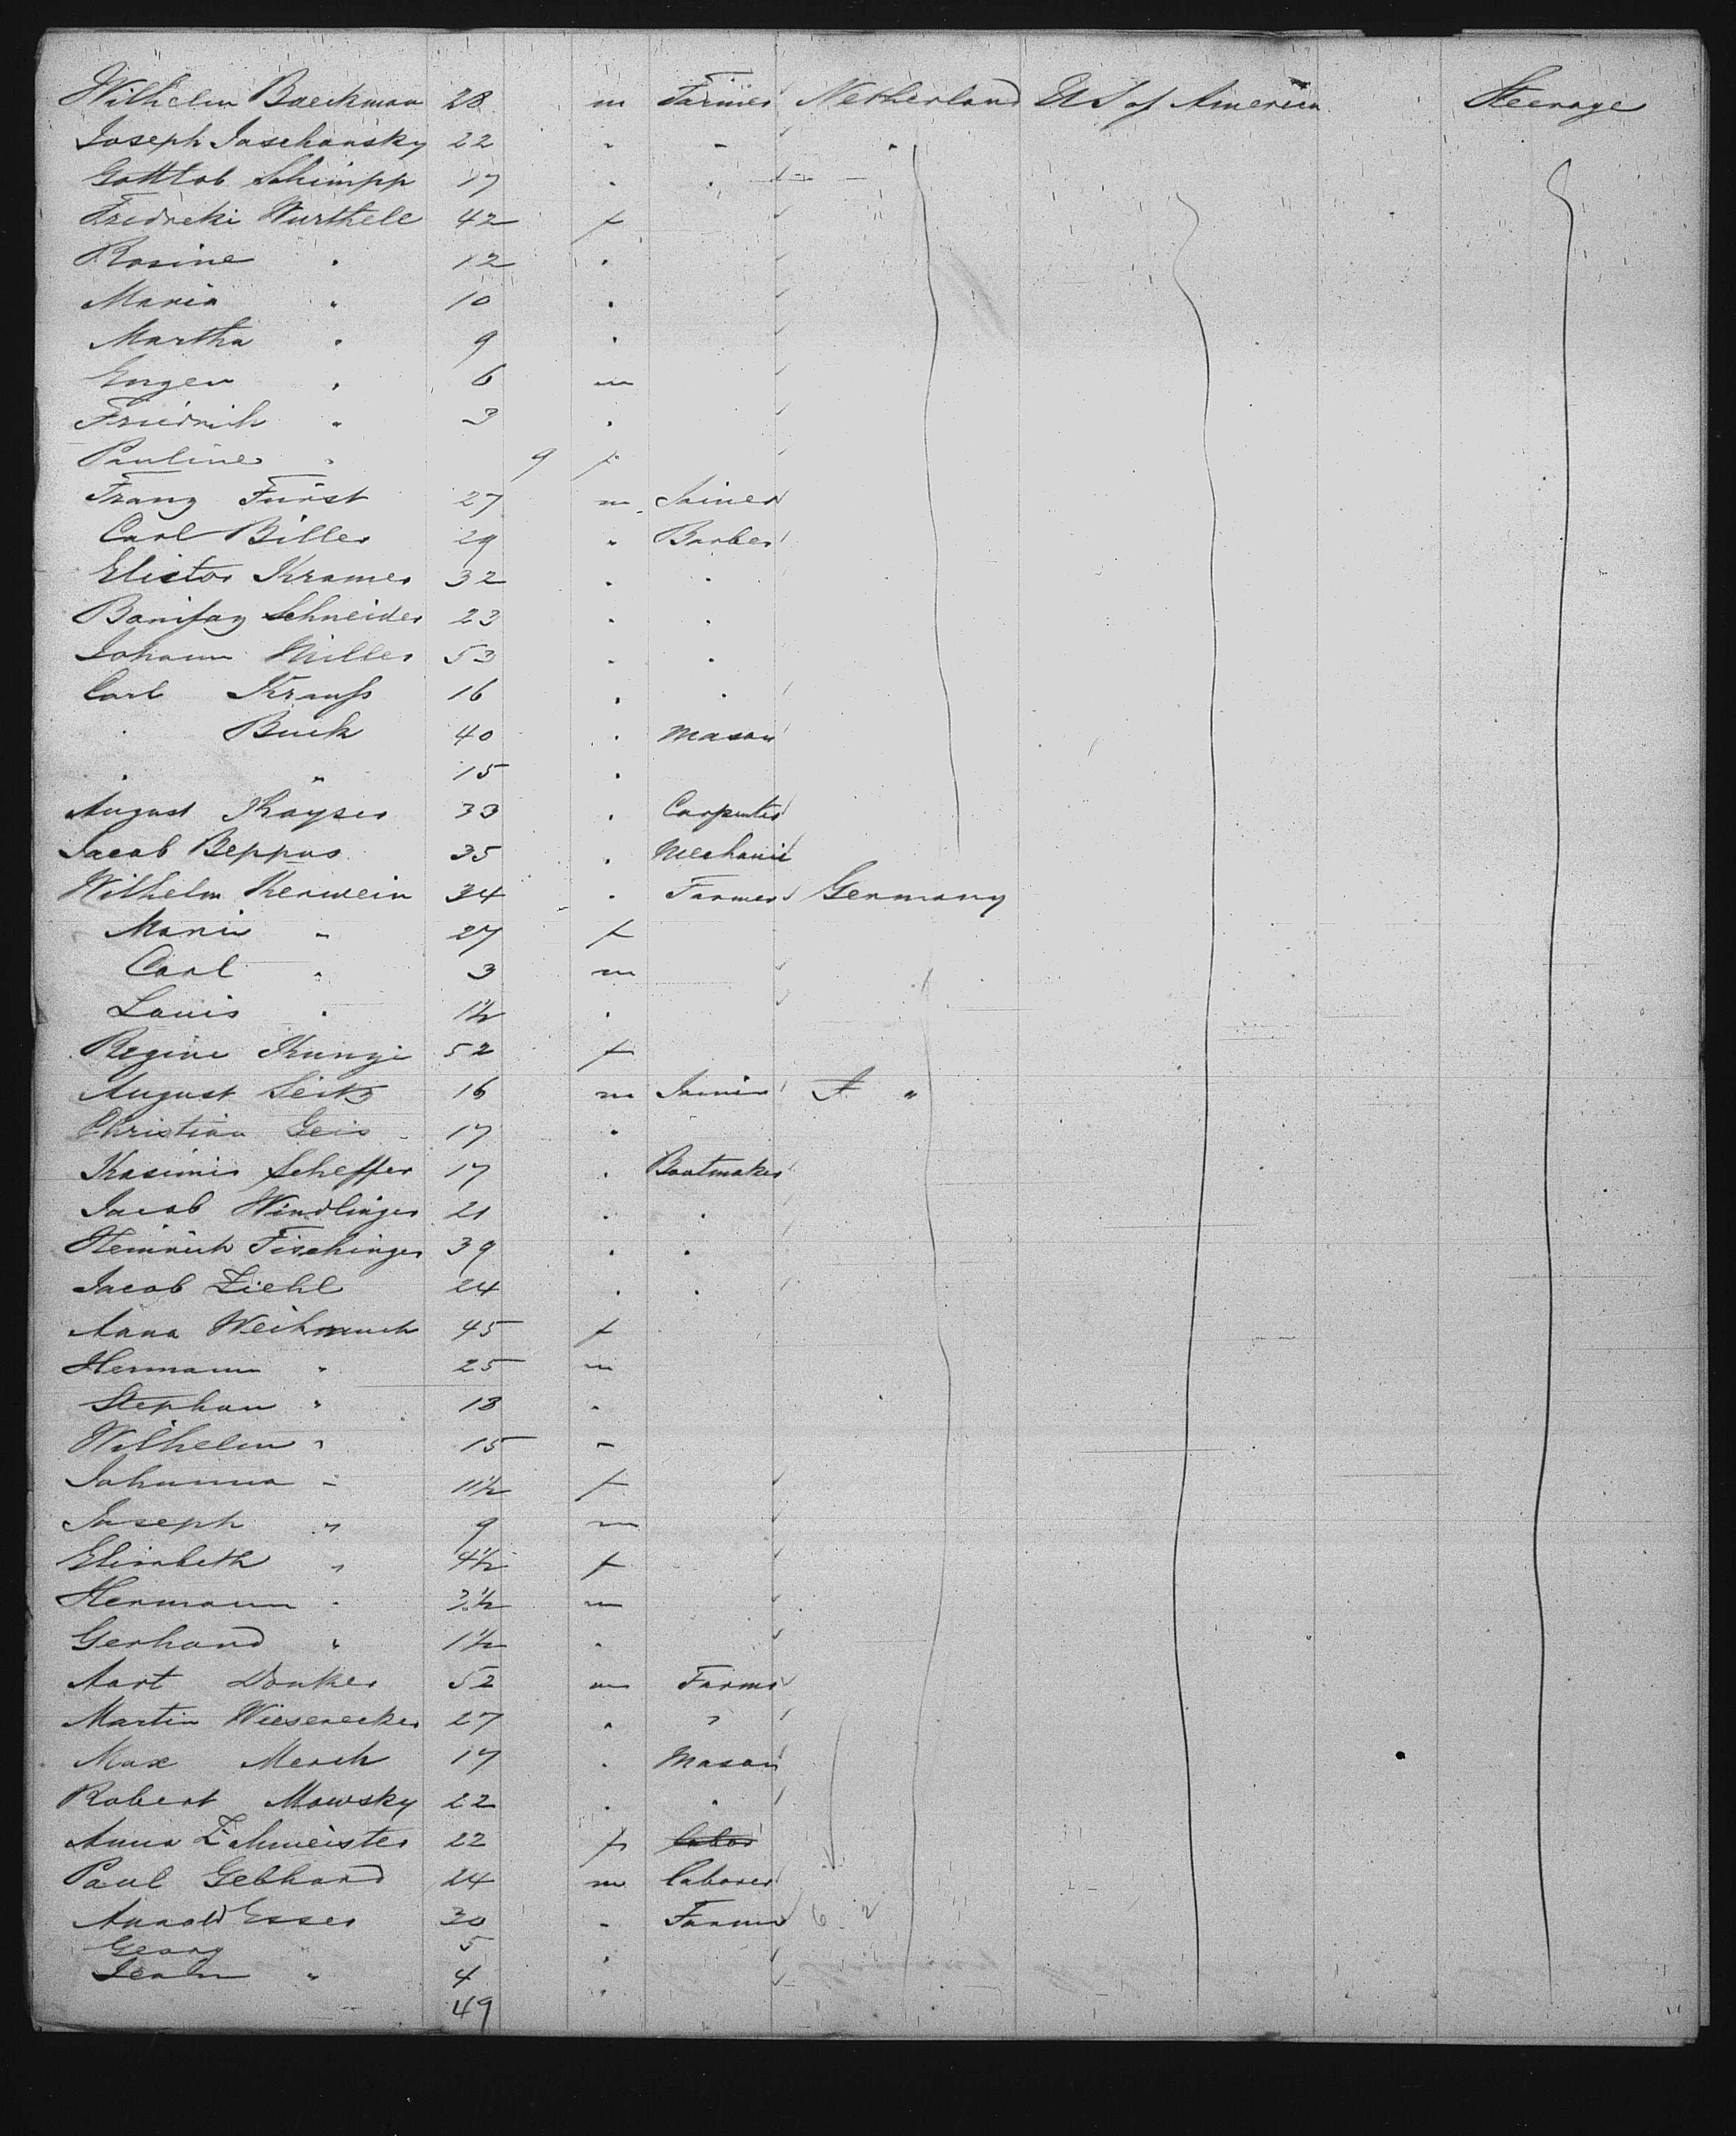 Wilhelm Baeckman 28 m Farmer Netherland US of America Steerage
Joseph Jaschansky 22 " " "
Gottlob Schimpp 17 " "
Fredreki Wurthele 42 f
Rosine " 12 "
Maria " 10 "
Martha " 9 "
Eugen " 6 m
Friedrich " 3 "
Pauline " 9 f
Franz Fürst 27 m Joiner
Carl Biller 29 " Barber
Kramer 32 " "
Bonifaz Schneider 23 " "
Johann Müller 53 " "
Carl Krauß 16 " "
" Buck 40 " Mason
" " 15 "
August Kayser 33 " Carpenter
Jacob Beppus 35 " Mechanic
Wilhelm Kerwein 34 " Farmer Germany
Marie " 27 f
Carl " 3 m
Louis " 1½ "
Regine Kunzi 52 f
August Seitz 16 m Joiner "
Christian Geis 17 "
Kasimir Scheffer 17 " Bootmaker
Jacob Windlinger 21 " "
Heinrich Fischinger 39 " "
Jacob Ziehl 24 " "
Anna Weihrauch 45 f
Hermann " 25 m
Stephan " 18 "
Wilhelm " 15 "
Johanna " 11½ f
Joseph " 9 m
Elisabeth " 4½ f
Hermann " 3½ m
Gerhard " 1½ "
Aart Donker 52 m Farmer
Martin Wiesenecker 27 " "
Max Merch 17 " Mason
Robert Mowsky 22 " "
Anna 22 f labor
Paul Gebhard 24 m laborer
Arnold Esser 30 " Farmer 6 2
Georg " 5 "
Jean " 4 "
49